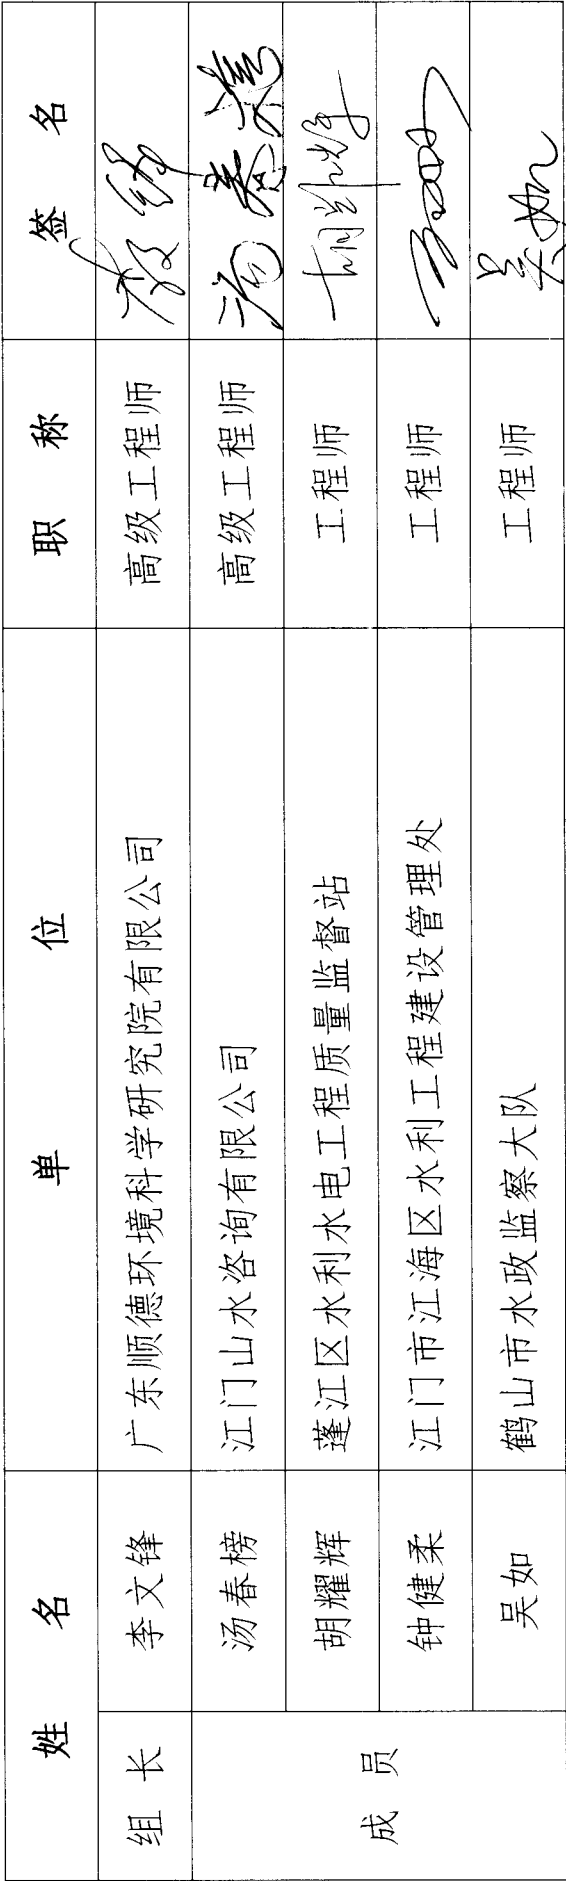 姓 名 单 位 职 称 签 名
组 长 李文锋 广东顺德环境科学研究院有限公司 高级工程师
成 员 汤春榜 江门山水咨询有限公司 高级工程师
胡耀辉 蓬江区水利水电工程质量监督站 工程师
钟健柔 江门市江海区水利工程建设管理处 工程师
吴如 鹤山市水政监察大队 工程师 吴如